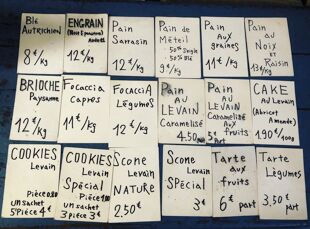 Blé
Autrichien
8€/kg
ENGRAIN
12€/kg
Pain
Sarrasin
12€/kg
Pain
de
Méteil
50% Seigle
50% Blé
9€/kg
Pain
Aux
graines
11€/kg
Pain
au
Noix
et
Raisin
13€/kg
BRIOCHE
Paysanne
12€/kg
Focaccia
Capres
11€/kg
Focaccia
Légumes
12€/kg
Pain
AU
LEVAIN
Caramélisé
4.50
Pain
AU
LEVAIN
Caramélisé
aux
fruits
5€ Part
CAKE
Au Levain
(Abricot
Amande)
1.90€/100g
COOKIES
Levain
Pièce
un sachet
5 Pièce 4€
COOKIES
Levain
SPÉCIAL
Pièce
un sachet
3 pièce 3€
Scone
Levain
NATURE
2,50€
Scone
Levain
SPÉCIAL
3€
Tarte
aux
fruits
6€ part
Tarte
Légumes
3,50€ part